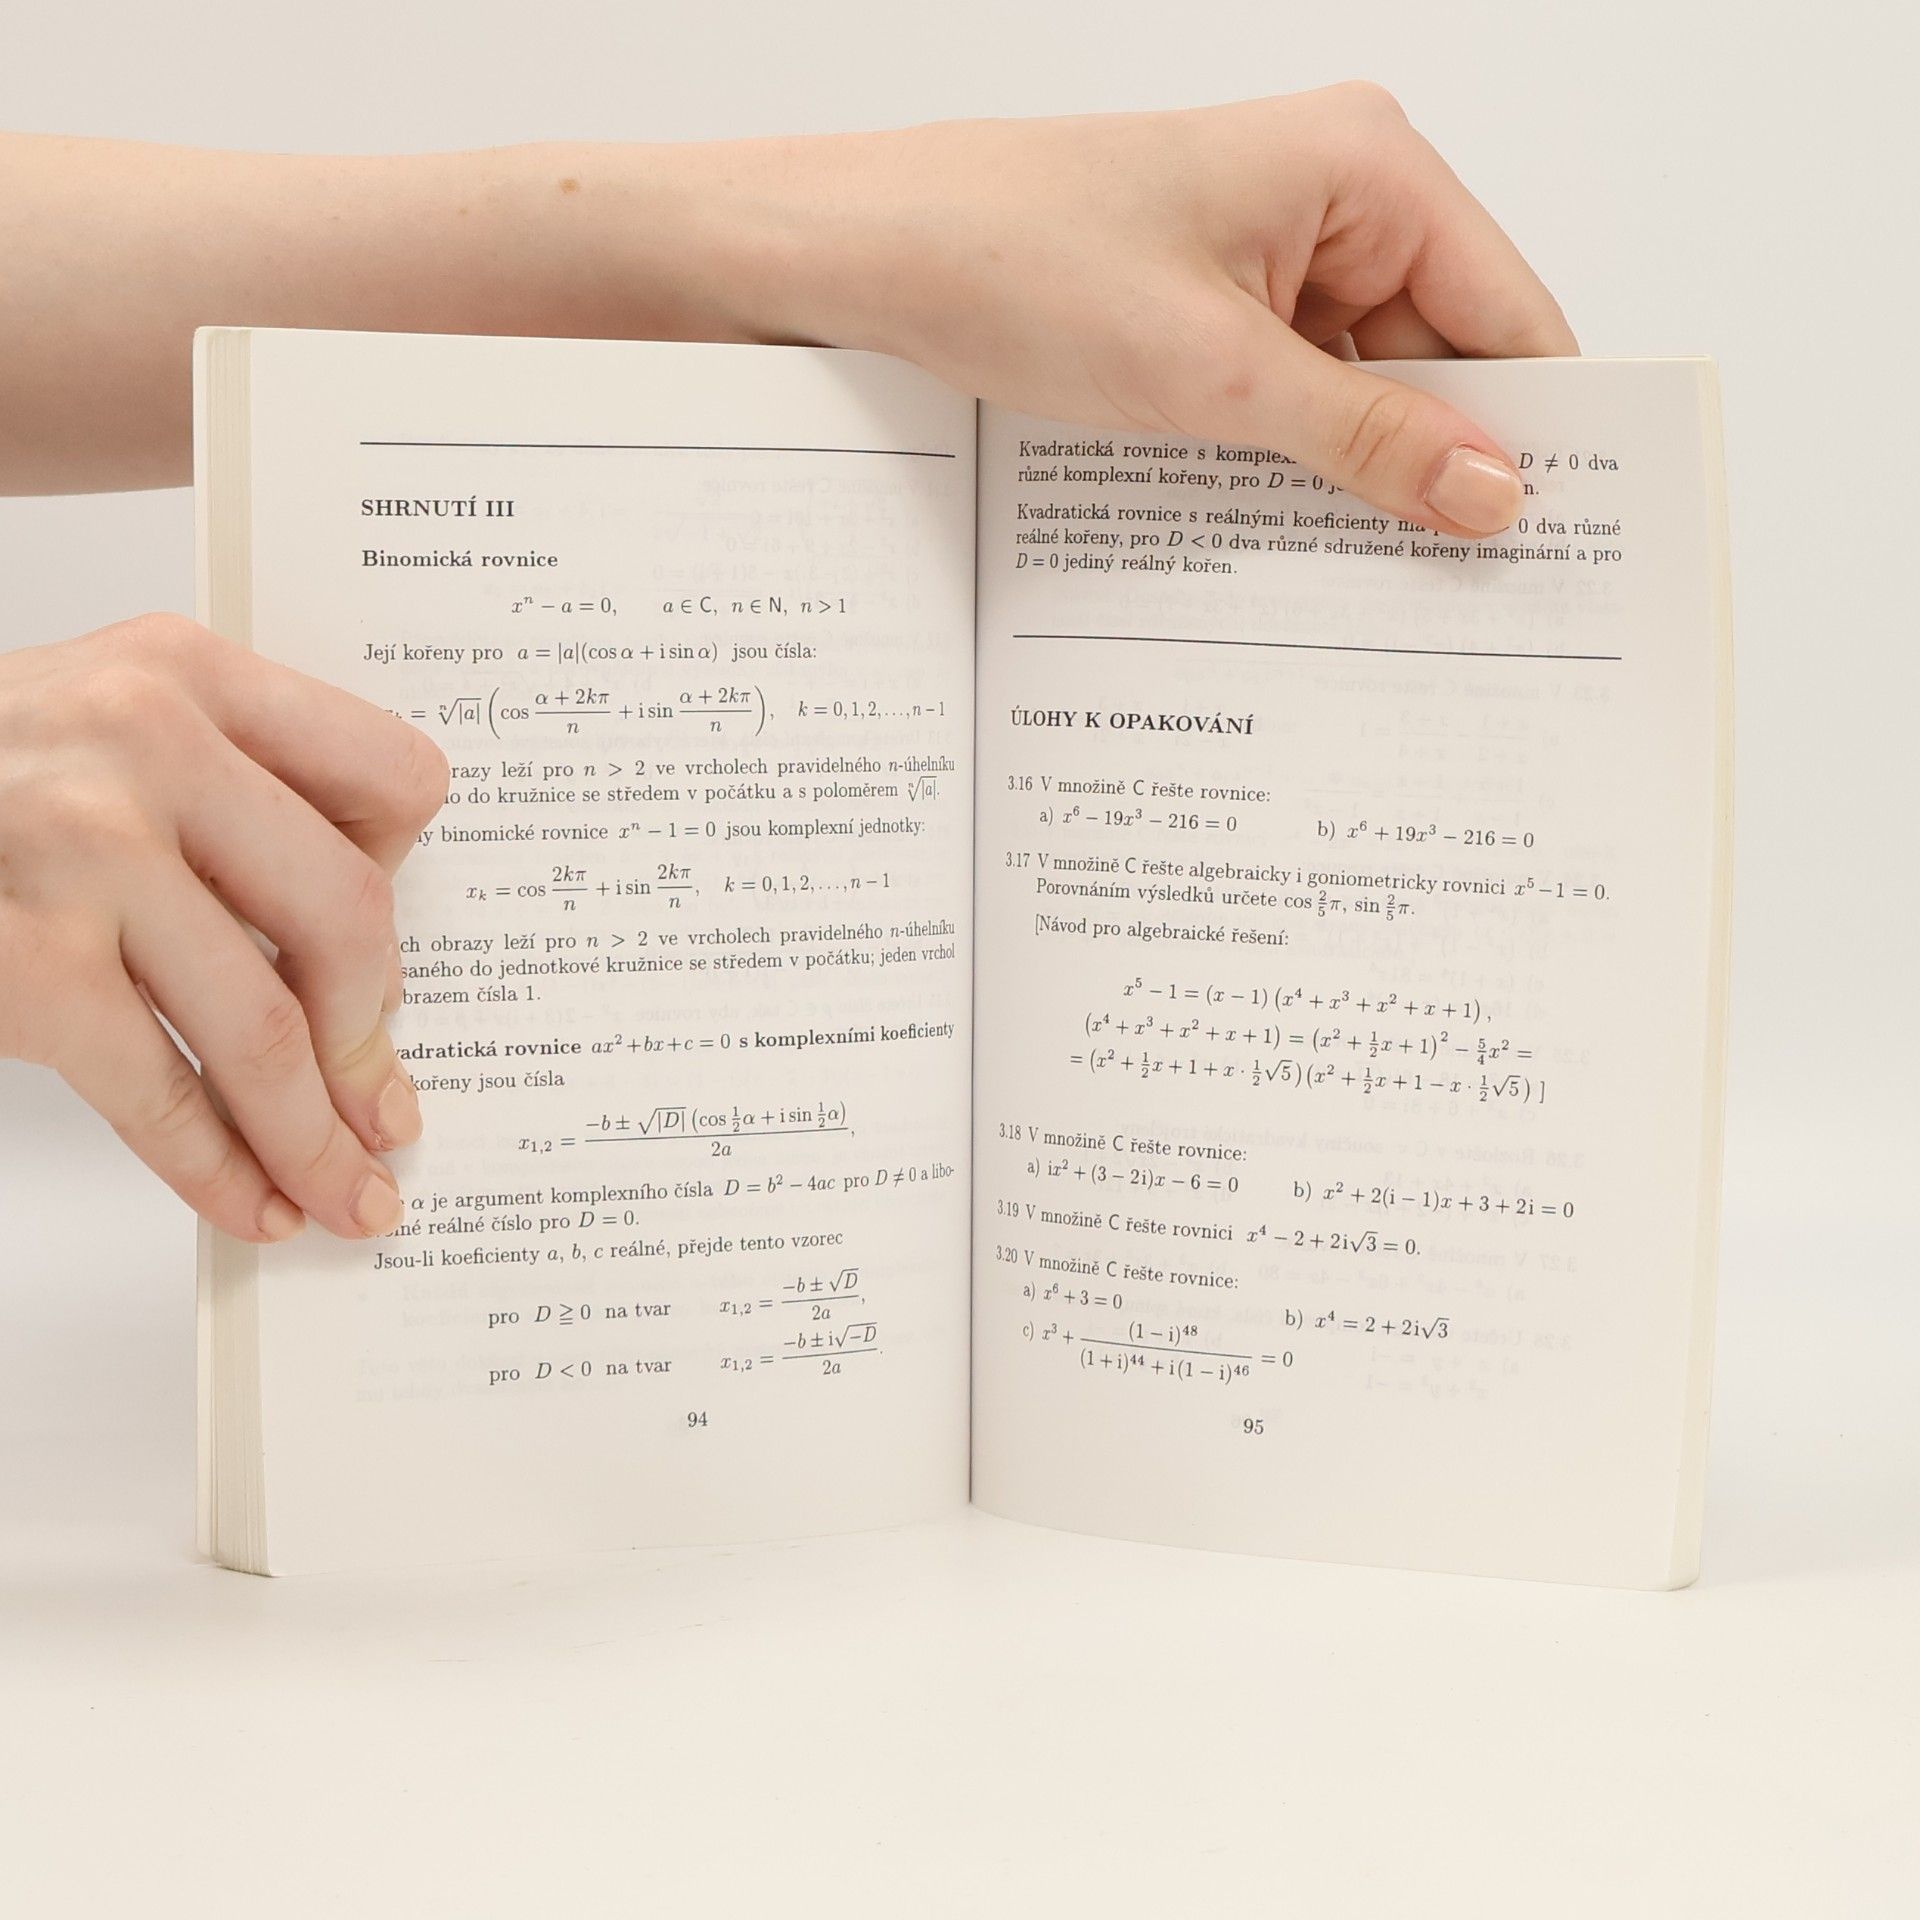 SHRNUTÍ III
Binomická rovnice
xⁿ − a = 0, a ∈ C, n ∈ N, n > 1
Její kořeny pro a = |a|(cos α + i sin α) jsou čísla:
= ⁿ√|a| (cos (α + 2kπ)/n + i sin (α + 2kπ)/n), k = 0, 1, 2, …, n − 1
leží pro n > 2 ve vrcholech pravidelného n-úhelníku
do kružnice se středem v počátku a s poloměrem ⁿ√|a|.
binomické rovnice xⁿ − 1 = 0 jsou komplexní jednotky:
xₖ = cos 2kπ/n + i sin 2kπ/n, k = 0, 1, 2, …, n − 1
obrazy leží pro n > 2 ve vrcholech pravidelného n-úhelníku
do jednotkové kružnice se středem v počátku; jeden vrchol
čísla 1.
rovnice ax² + bx + c = 0 s komplexními koeficienty
kořeny jsou čísla
x₁,₂ = (−b ± √|D| (cos ½α + i sin ½α))/2a,
α je argument komplexního čísla D = b² − 4ac pro D ≠ 0 a libo-
reálné číslo pro D = 0.
Jsou-li koeficienty a, b, c reálné, přejde tento vzorec
pro D ≧ 0 na tvar x₁,₂ = (−b ± √D)/2a,
pro D < 0 na tvar x₁,₂ = (−b ± i√−D)/2a.
94
Kvadratická rovnice s D ≠ 0 dva
různé komplexní kořeny, pro D = 0
Kvadratická rovnice s reálnými koeficienty 0 dva různé
reálné kořeny, pro D < 0 dva různé sdružené kořeny imaginární a pro
D = 0 jediný reálný kořen.
ÚLOHY K OPAKOVÁNÍ
3.16 V množině C řešte rovnice:
a) x⁶ − 19x³ − 216 = 0 b) x⁶ + 19x³ − 216 = 0
3.17 V množině C řešte algebraicky i goniometricky rovnici x⁵ − 1 = 0.
Porovnáním výsledků určete cos ⅖π, sin ⅖π.
[Návod pro algebraické řešení:
x⁵ − 1 = (x − 1) (x⁴ + x³ + x² + x + 1),
(x⁴ + x³ + x² + x + 1) = (x² + ½x + 1)² − 5/4x² =
= (x² + ½x + 1 + x · ½√5) (x² + ½x + 1 − x · ½√5) ]
3.18 V množině C řešte rovnice:
a) ix² + (3 − 2i)x − 6 = 0 b) x² + 2(i − 1)x + 3 + 2i = 0
3.19 V množině C řešte rovnici x⁴ − 2 + 2i√3 = 0.
3.20 V množině C řešte rovnice:
a) x⁶ + 3 = 0 b) x⁴ = 2 + 2i√3
c) x³ + (1 − i)⁴⁸/((1 + i)⁴⁴ + i(1 − i)⁴⁶) = 0
95